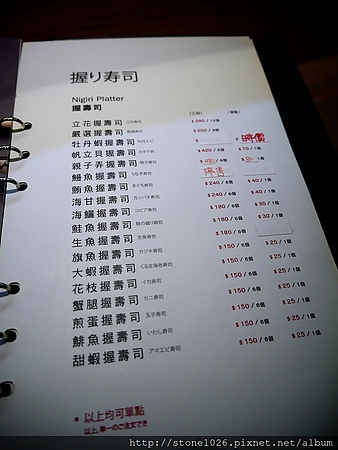 握り寿司
Nigiri Platter
握壽司
立花握壽司 立花寿司 $280 / 12個
嚴選握壽司 $200 / 8個
牡丹蝦握壽司 牡丹エビ 時價
帆立貝握壽司 ホタテ貝 $420 / 6個 $70 / 1個
親子弄握壽司 親子寿司 / 6個 / 1個
鰻魚握壽司 うなぎ寿司 停售
鮪魚握壽司 まぐろ寿司 $240 / 6個 $40 / 1個
海甘握壽司 カンパチ寿司 $240 / 6個 $40 / 1個
海鱺握壽司 コビア寿司 $180 / 6個 $30 / 1個
鮭魚握壽司 鮭の握り寿司 $180 / 6個 $30 / 1個
生魚握壽司 生魚寿司 $180 / 6個
旗魚握壽司 カジキ寿司 $150 / 6個 $25 / 1個
大蝦握壽司 くるま海老寿司 $150 / 6個 $25 / 1個
花枝握壽司 イカ寿司 $150 / 6個 $25 / 1個
蟹腿握壽司 カニ寿司 $150 / 6個 $25 / 1個
煎蛋握壽司 玉子寿司 $150 / 6個 $25 / 1個
鯡魚握壽司 いわし寿司 $150 / 6個 $25 / 1個
甜蝦握壽司 アマエビ寿司 $150 / 6個 $25 / 1個
以上均可單點
以上、単一のご注文でき
http://stone1026.pixnet.net/album